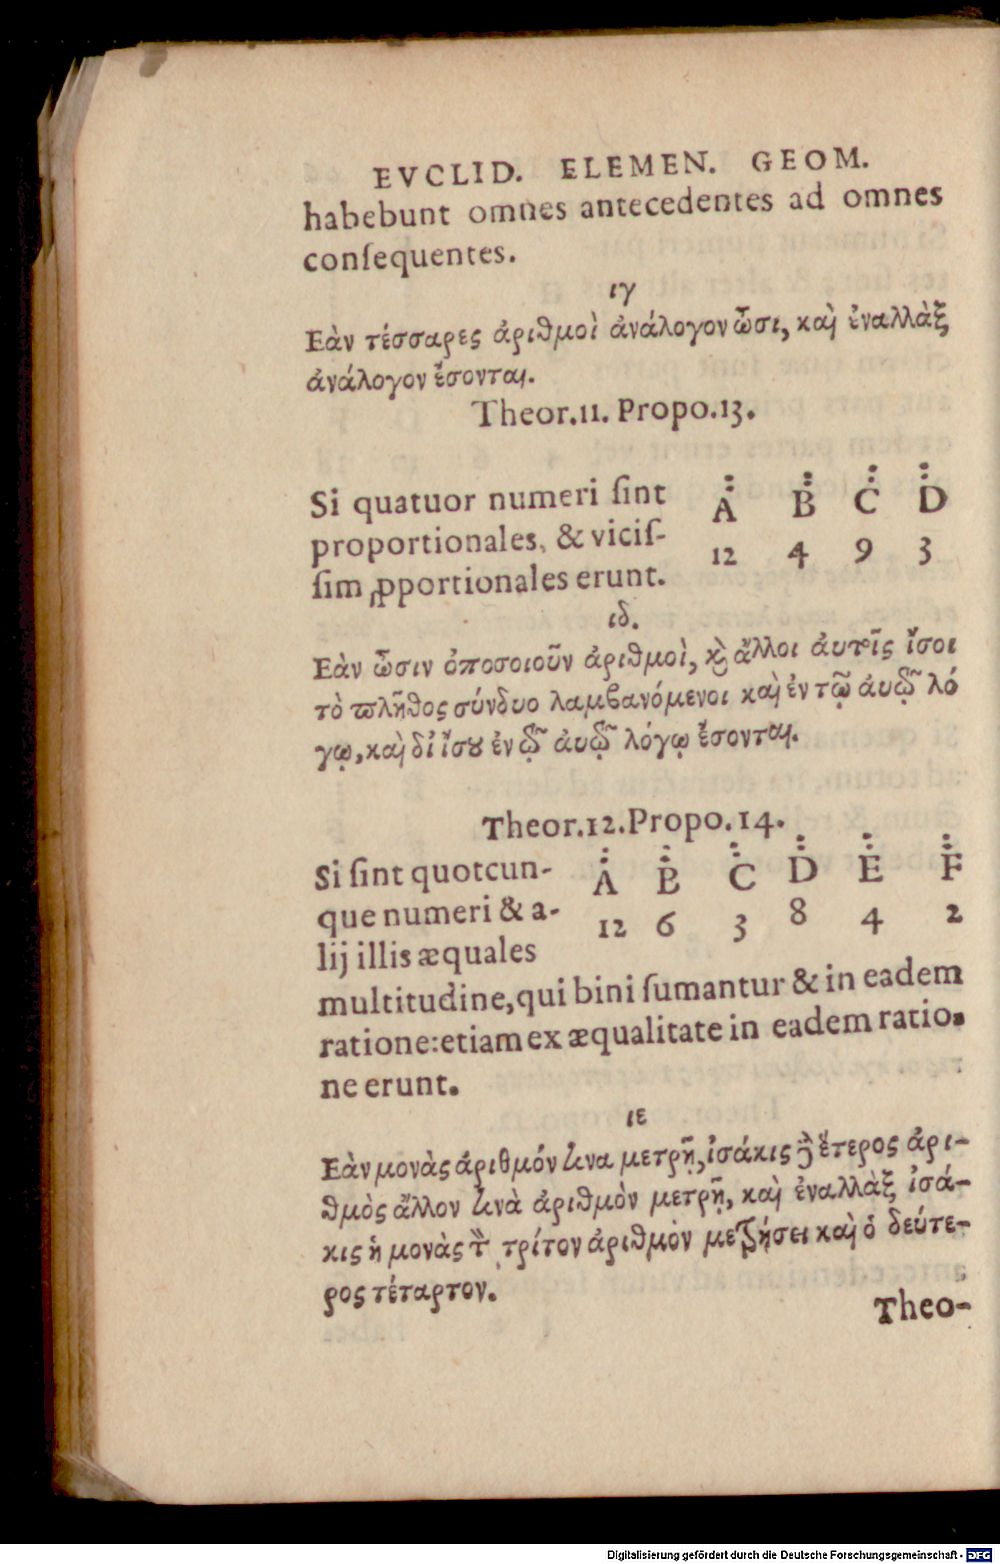 EVCLID. ELEMEN. GEOM.
habebunt omnes antecedentes ad omnes
conſequentes.
ιγ
Εὰν τέσσαρες ἀριθμοὶ ἀνάλογον ὦσι, καὶ ἐναλλὰξ
ἀνάλογον ἔσονται.
Theor.11. Propo.13.
Si quatuor numeri ſint
proportionales, & viciſ-
ſim ꝓportionales erunt.
A B C D
12 4 9 3
ιδ.
Εὰν ὦσιν ὁποσοιοῦν ἀριθμοὶ, ϗ ἄλλοι ἀυτοῖς ἴσοι
τὸ ϖλῆθος σύνδυο λαμβανόμενοι καὶ ἐν τῷ ἀυτῷ λό
γῳ, καὶ δἰ ἴσȣ ἐν τῷ ἀυτῷ λόγῳ ἔσονται.
Theor.12.Propo.14.
Si ſint quotcun-
que numeri & a-
lij illis æquales
A B C D E F
12 6 3 8 4 2
multitudine,qui bini ſumantur & in eadem
ratione:etiam ex æqualitate in eadem ratio-
ne erunt.
ιε
Εὰν μονὰς ἀριθμόν τινα μετρῇ, ἰσάκις δὲ ἕτερος ἀρι-
θμὸς ἄλλον τινὰ ἀριθμὸν μετρῇ, καὶ ἐναλλὰξ ἰσά-
κις ἡ μονὰς τὸν τρίτον ἀριθμὸν μετρήσει καὶ ὁ δεύτε-
ρος τέταρτον.
Theo-
Digitalisierung gefördert durch die Deutsche Forschungsgemeinschaft - DFG